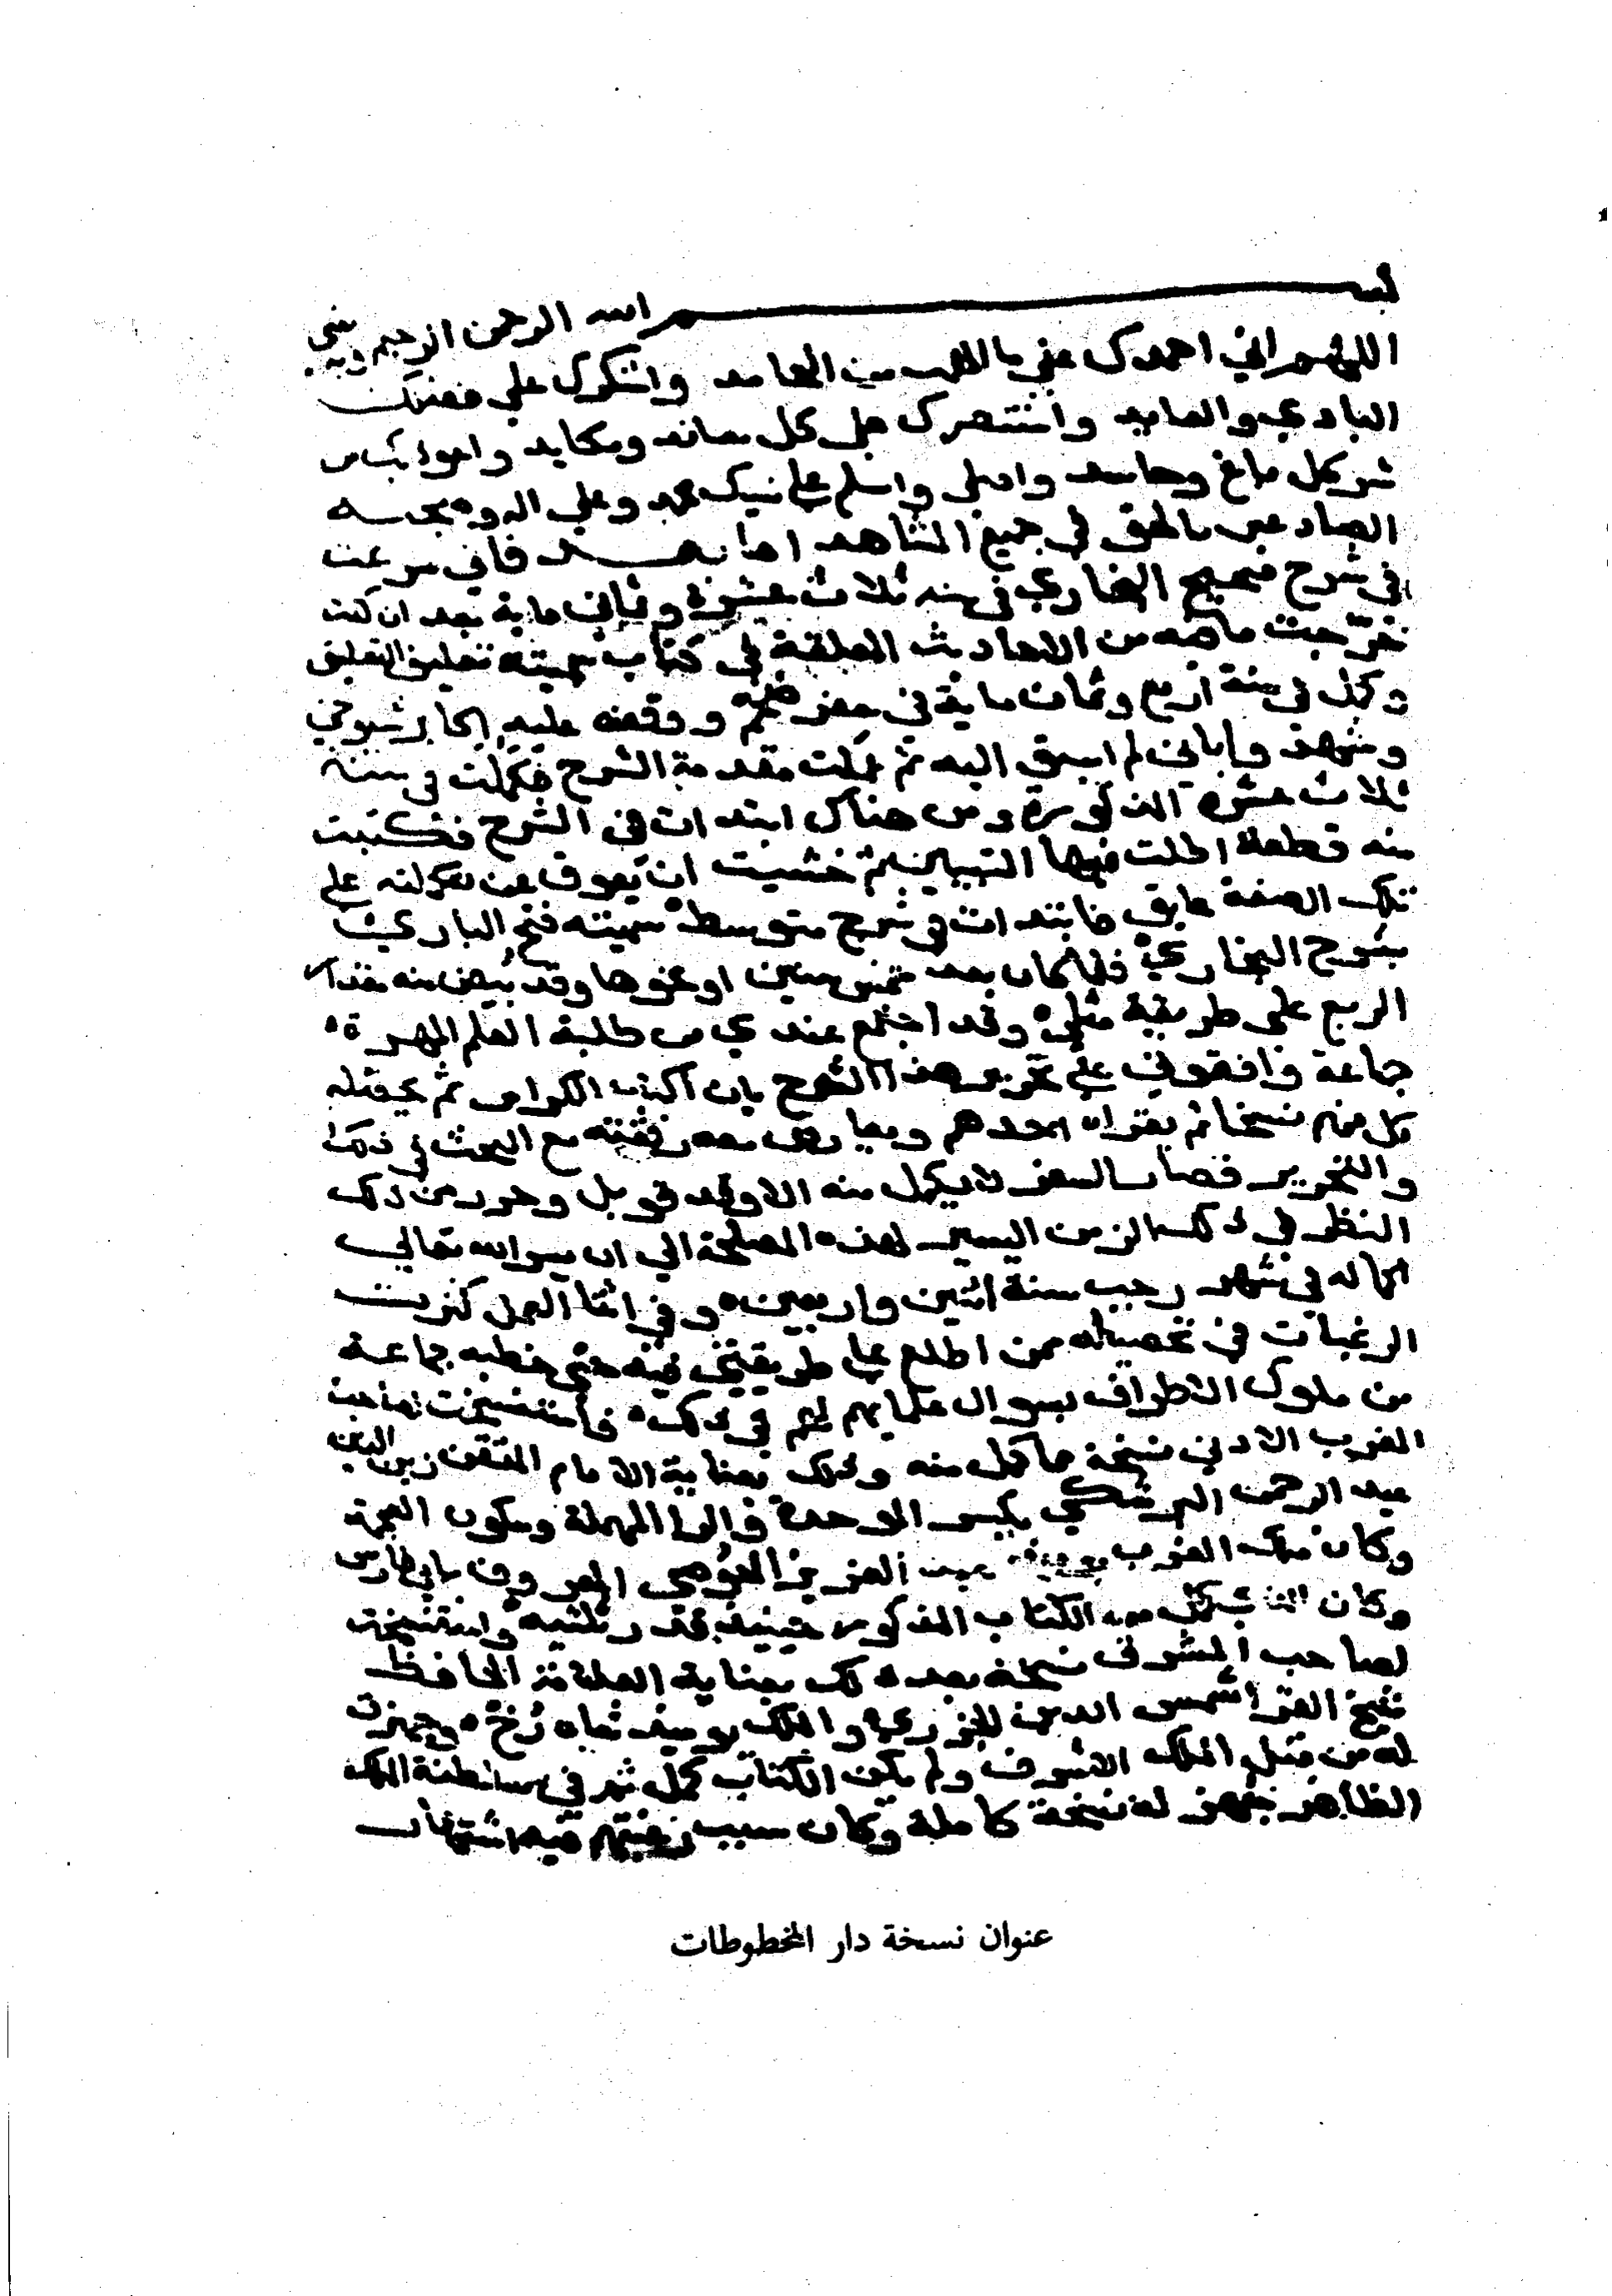 بسم الله الرحمن الرحيم
اللهم اني احمدك من المحامد واشكرك علي فضلك
البادي والعايد وانتصرك علي كل معاند ومكايد واعوذ بك من
شر كل باغ وحاسد واصلي واسلم علي نبيك محمد وعلي اله وصحبه
الصادعين بالحق في جميع المشاهد اما بعد فاني شرعت
في شرح صحيح البخاري في سنه ثلاث عشرة وثماني ماية بعد ان كنت
خرّجت ما فيه من الاحاديث المعلقة في كتاب سميته تعليق التعليق
وكمل في سنة اربع وثمان ماية في سفر ضخم ووقف عليه اكابر شيوخي
وشهدوا باني لم اسبق اليه ثم عملت مقدمة الشرح فكملت في سنة
ثلاث عشرة المذكورة ومن هناك ابتدات في الشرح فكتبت
منه قطعة اطلت فيها التبيين ثم خشيت ان يعوق عن تكملته علي
تلك الصفة عايق فابتدات في شرح متوسط سميته فتح الباري
بشرح البخاري فلما كان بعد خمس سنين او نحوها وقد بيض منه مقدار
الربع علي طريقة مثلي وقد اجتمع عندي من طلبة العلم المهرة
جماعة وافقوني علي تحرير هذا الشرح بان اكتب الكراس ثم يحصله
كل منهم نسخا ثم يقراه احدهم ويعارض معه رفقته مع البحث في ذلك
والتحرير فصار السفر لا يكمل منه الا وقد قوبل وحرر من ذلك
النظر في ذلك الزمن اليسير لهذه المصلحة الي ان يسر الله تعالي
اكماله في شهر رجب سنة اثنين واربعين وفي اثنا العمل كثرت
الرغبات في تحصيله ممن اطلع علي طريقتي فيه حتي خطبه جماعة
من ملوك الاطراف بسوال علمايهم لهم في ذلك فاستنسخت لصاحب
الغرب الادني نسخة ما كمل منه وذلك بعناية الامام المتقن زين الدين
عبد الرحمن البرشكي بكسر الموحدة والرا المهملة وسكون المعجمة
وكان ملك الغرب عبد العزيز الحفصي المعروف بابي فارس
وكان الذي كمل من الكتاب المذكور حينيذ قدر ثلثيه واستنسخت
لصاحب المشرق نسخة بعد ذلك بعناية العلامة الحافظ
شيخ القرا شمس الدين الجزري والملك يوميذ شاه رُخّ وجهزت
له من قبل الملك الاشرف ولم يكن الكتاب كمل ثم في سلطنة الملك
الظاهر جهز له نسخة كاملة وكان سبب رغبتهم فيه اشتهار
عنوان نسخة دار المخطوطات